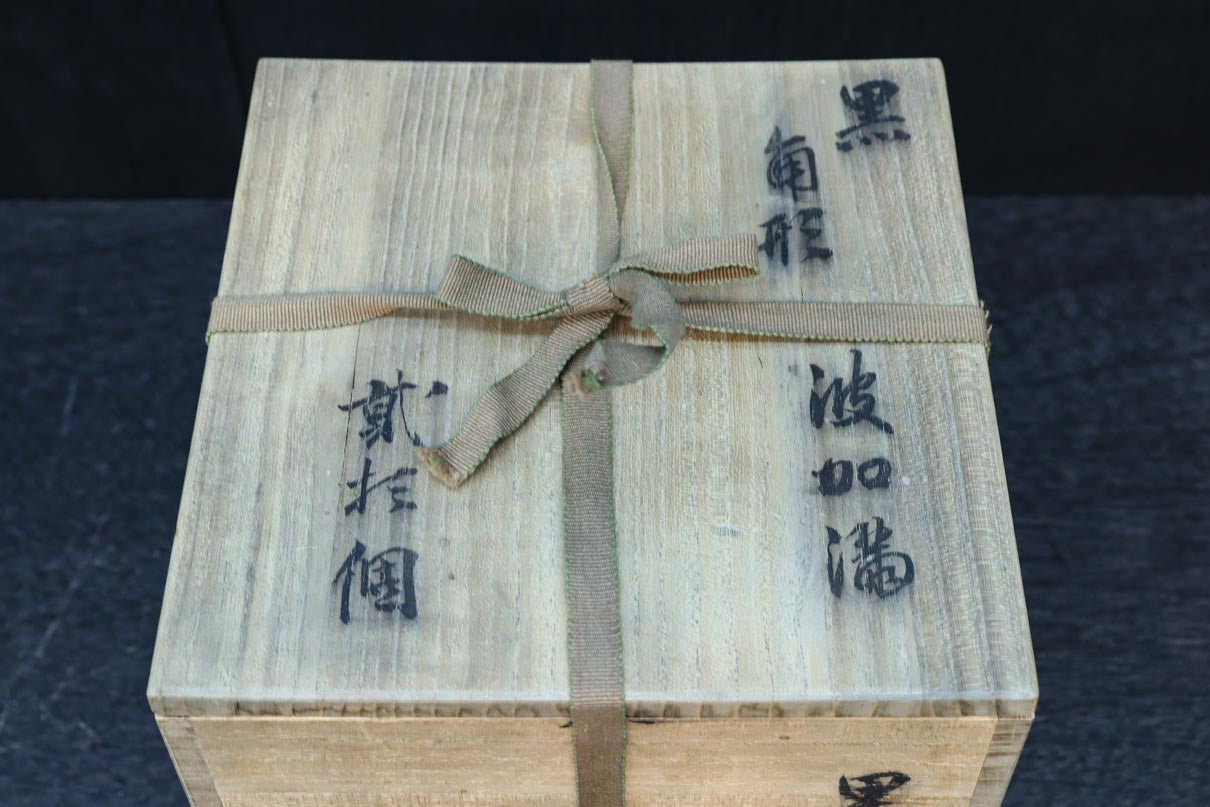 黒
角形
波加満
貮拾個
黒